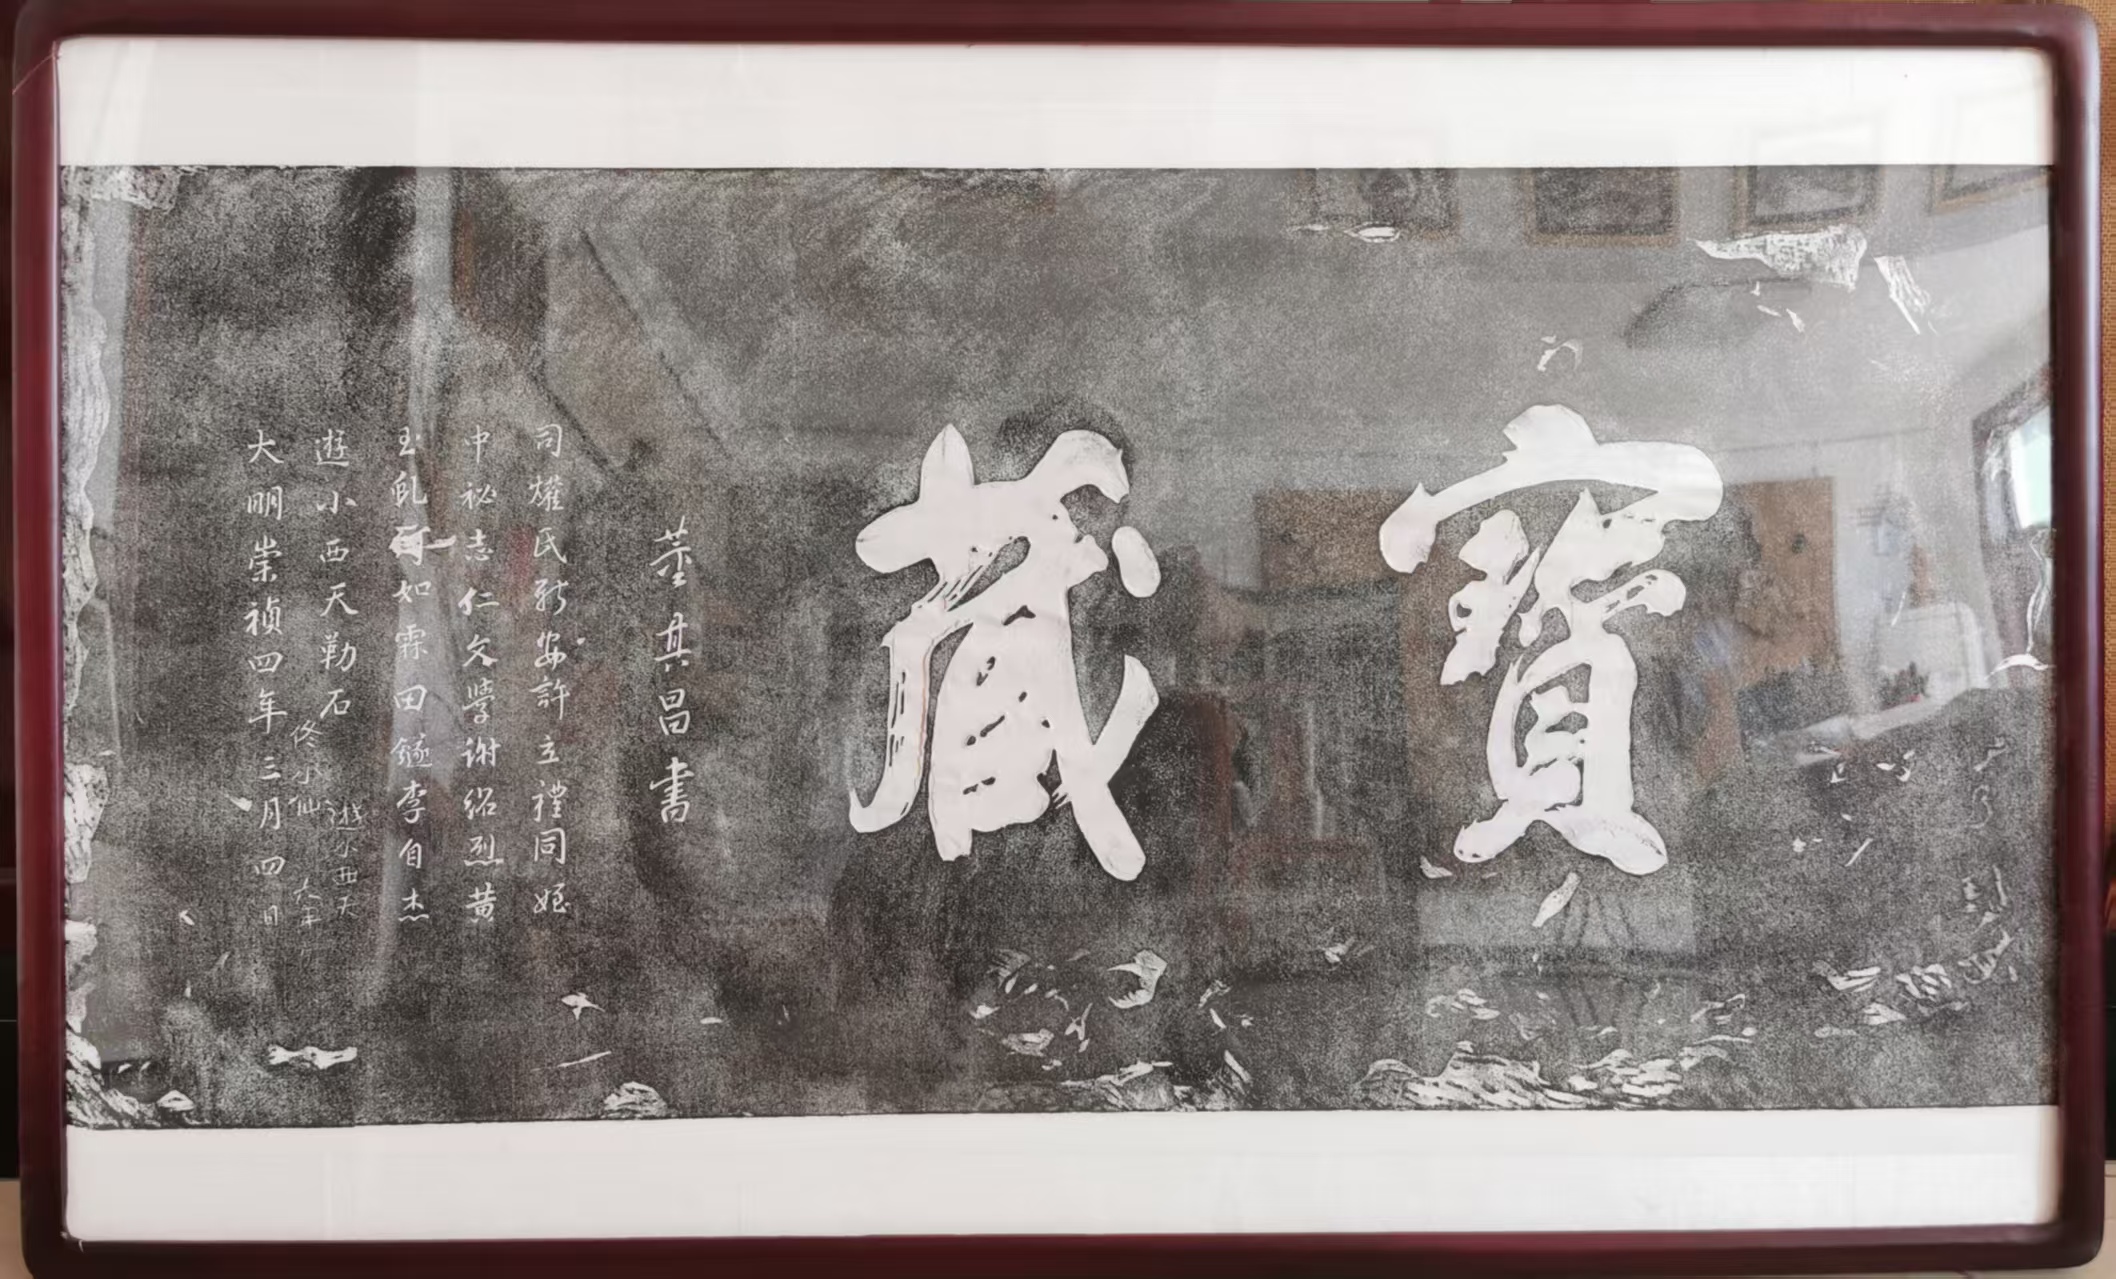 寶藏
董其昌書
司爟氏新安許立禮同姪
中祕志仁文學謝紹烈黃
玉如霖田鐩李自杰
遊小西天勒石
大明崇禎四年三月四日
佟小仙
遊小西天